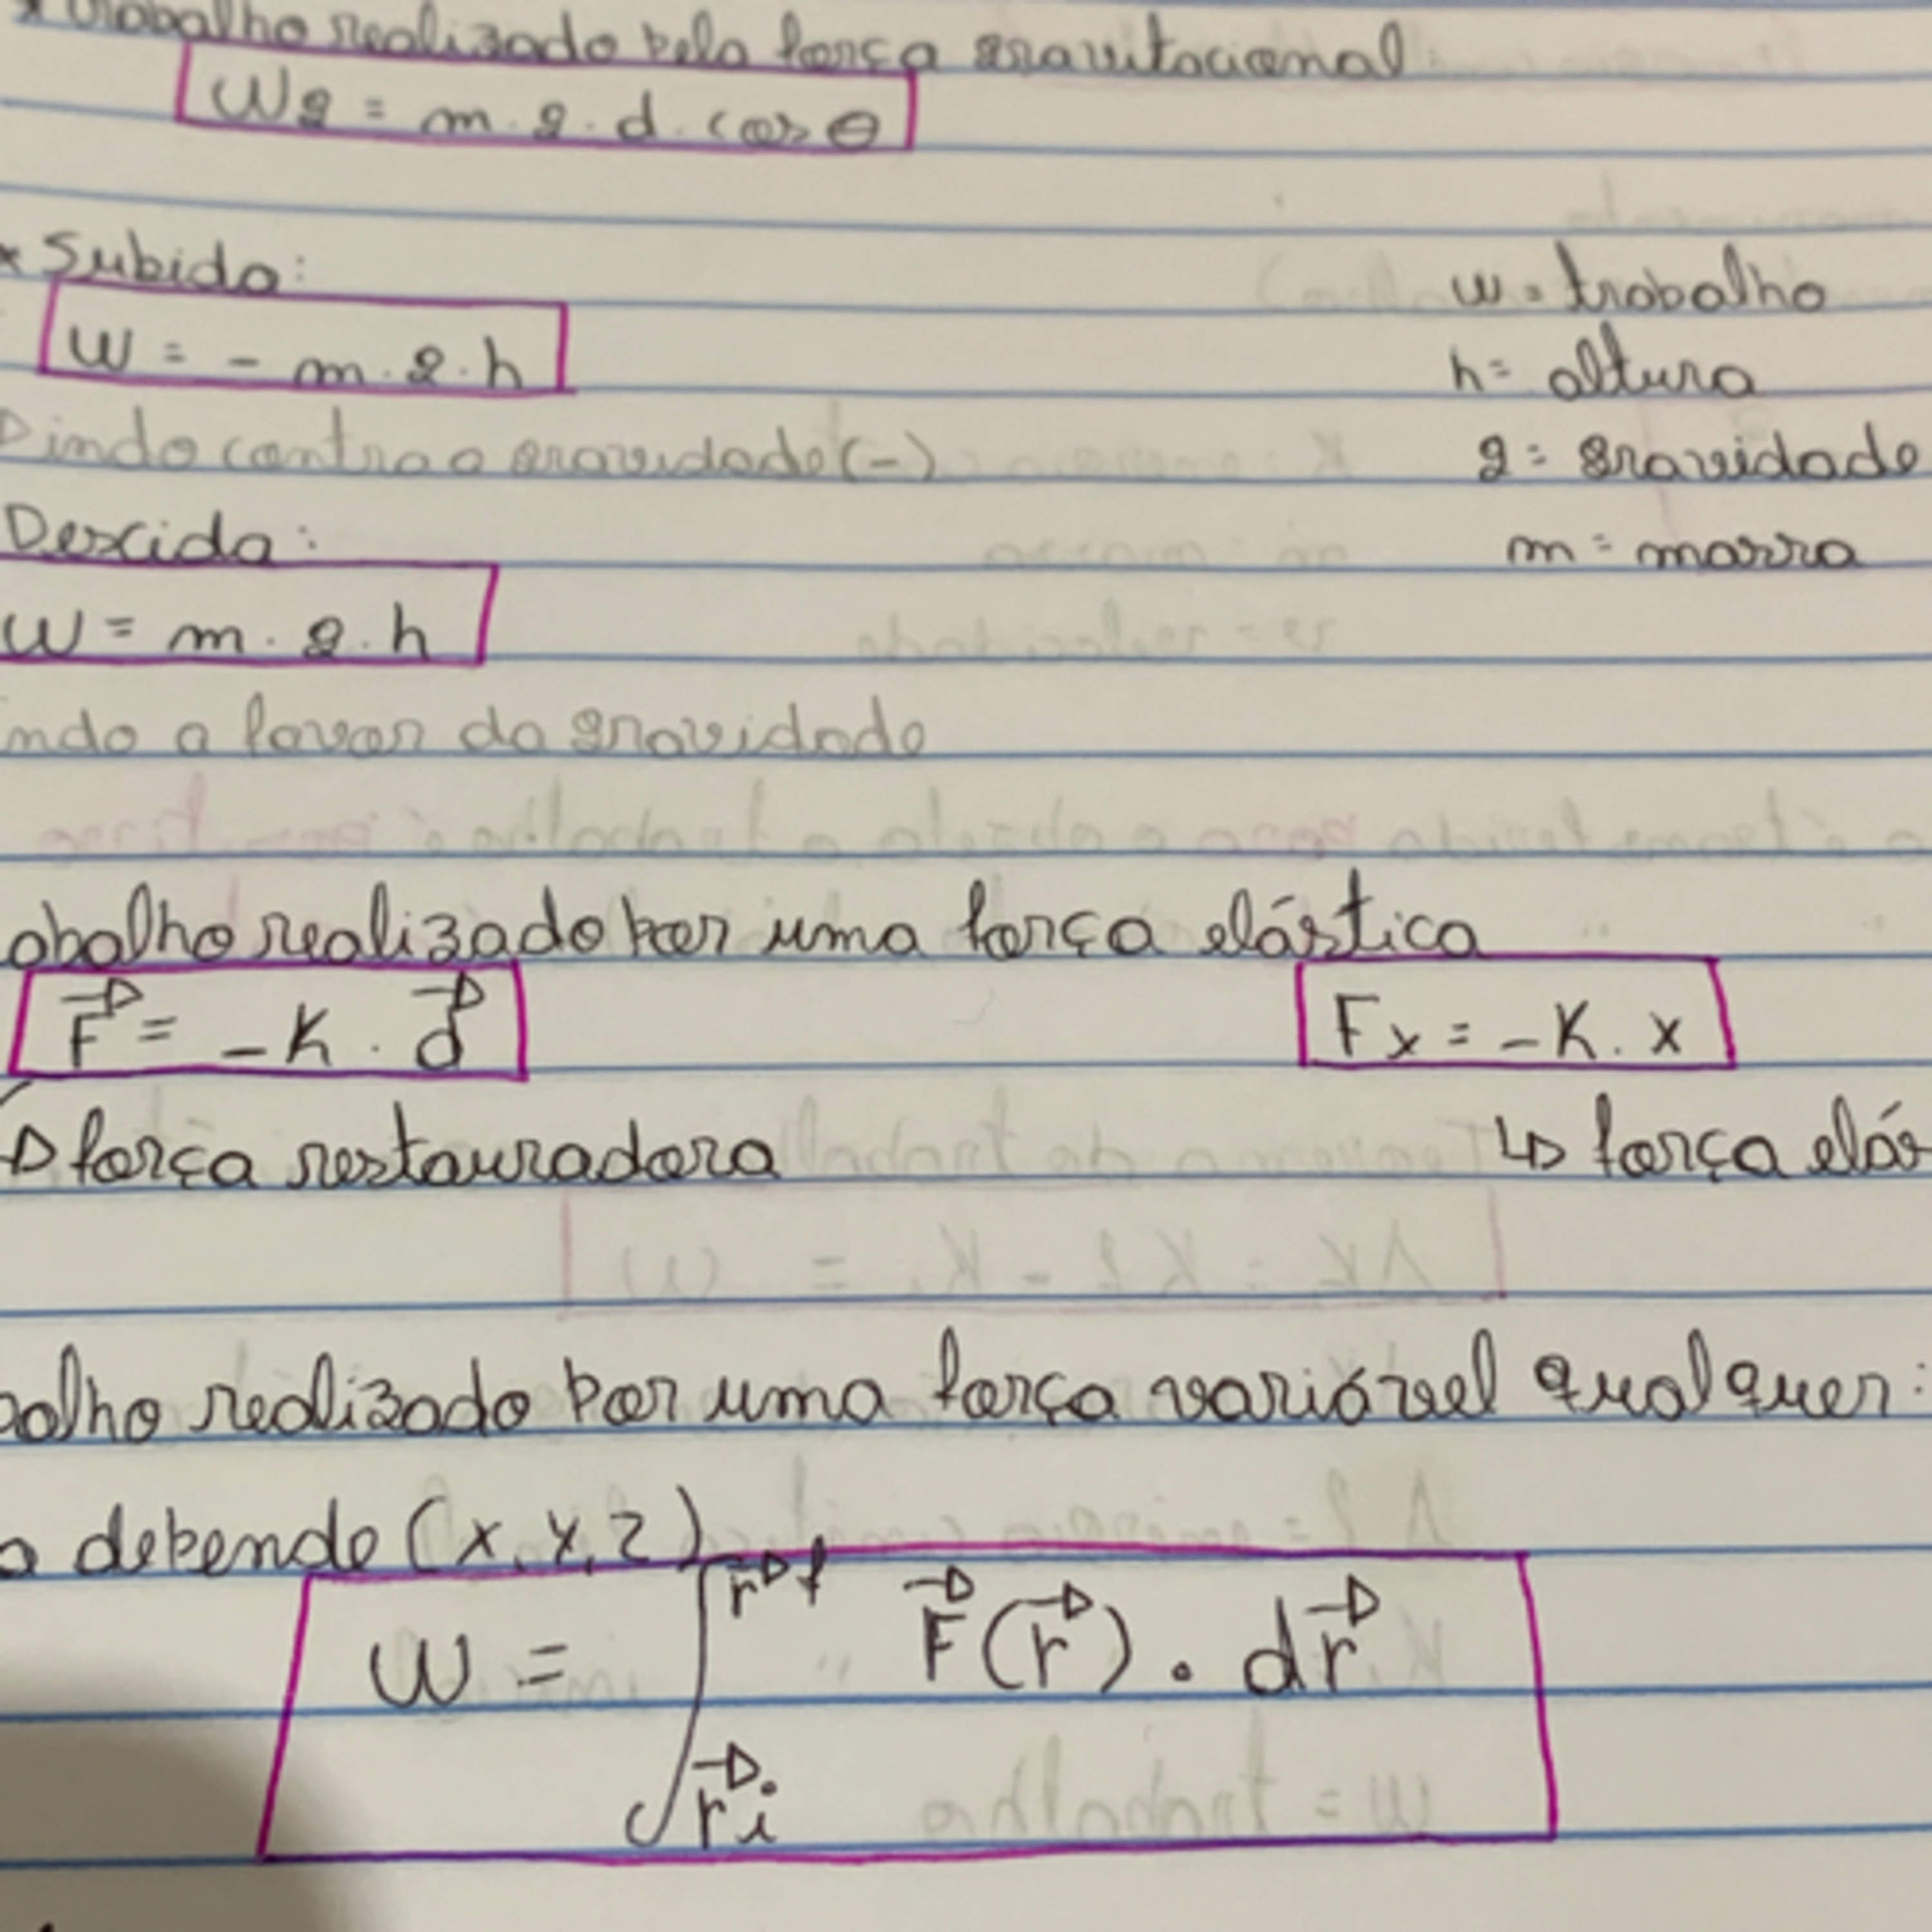 * Trabalho realizado pela força gravitacional
Wg = m . g . d . cos θ
* Subida:
W = - m . g . h
indo contra a gravidade (-)
Descida:
W = m . g . h
indo a favor da gravidade
w = trabalho
h = altura
g = gravidade
m = massa
abalho realizado por uma força elástica
F⃗ = - K . d⃗
força restauradora
Fx = - K . x
↳ força elás
balho realizado por uma força variável qualquer:
a depende (x, y, z)
W = ∫ r⃗f r⃗i F⃗(r⃗) . dr⃗